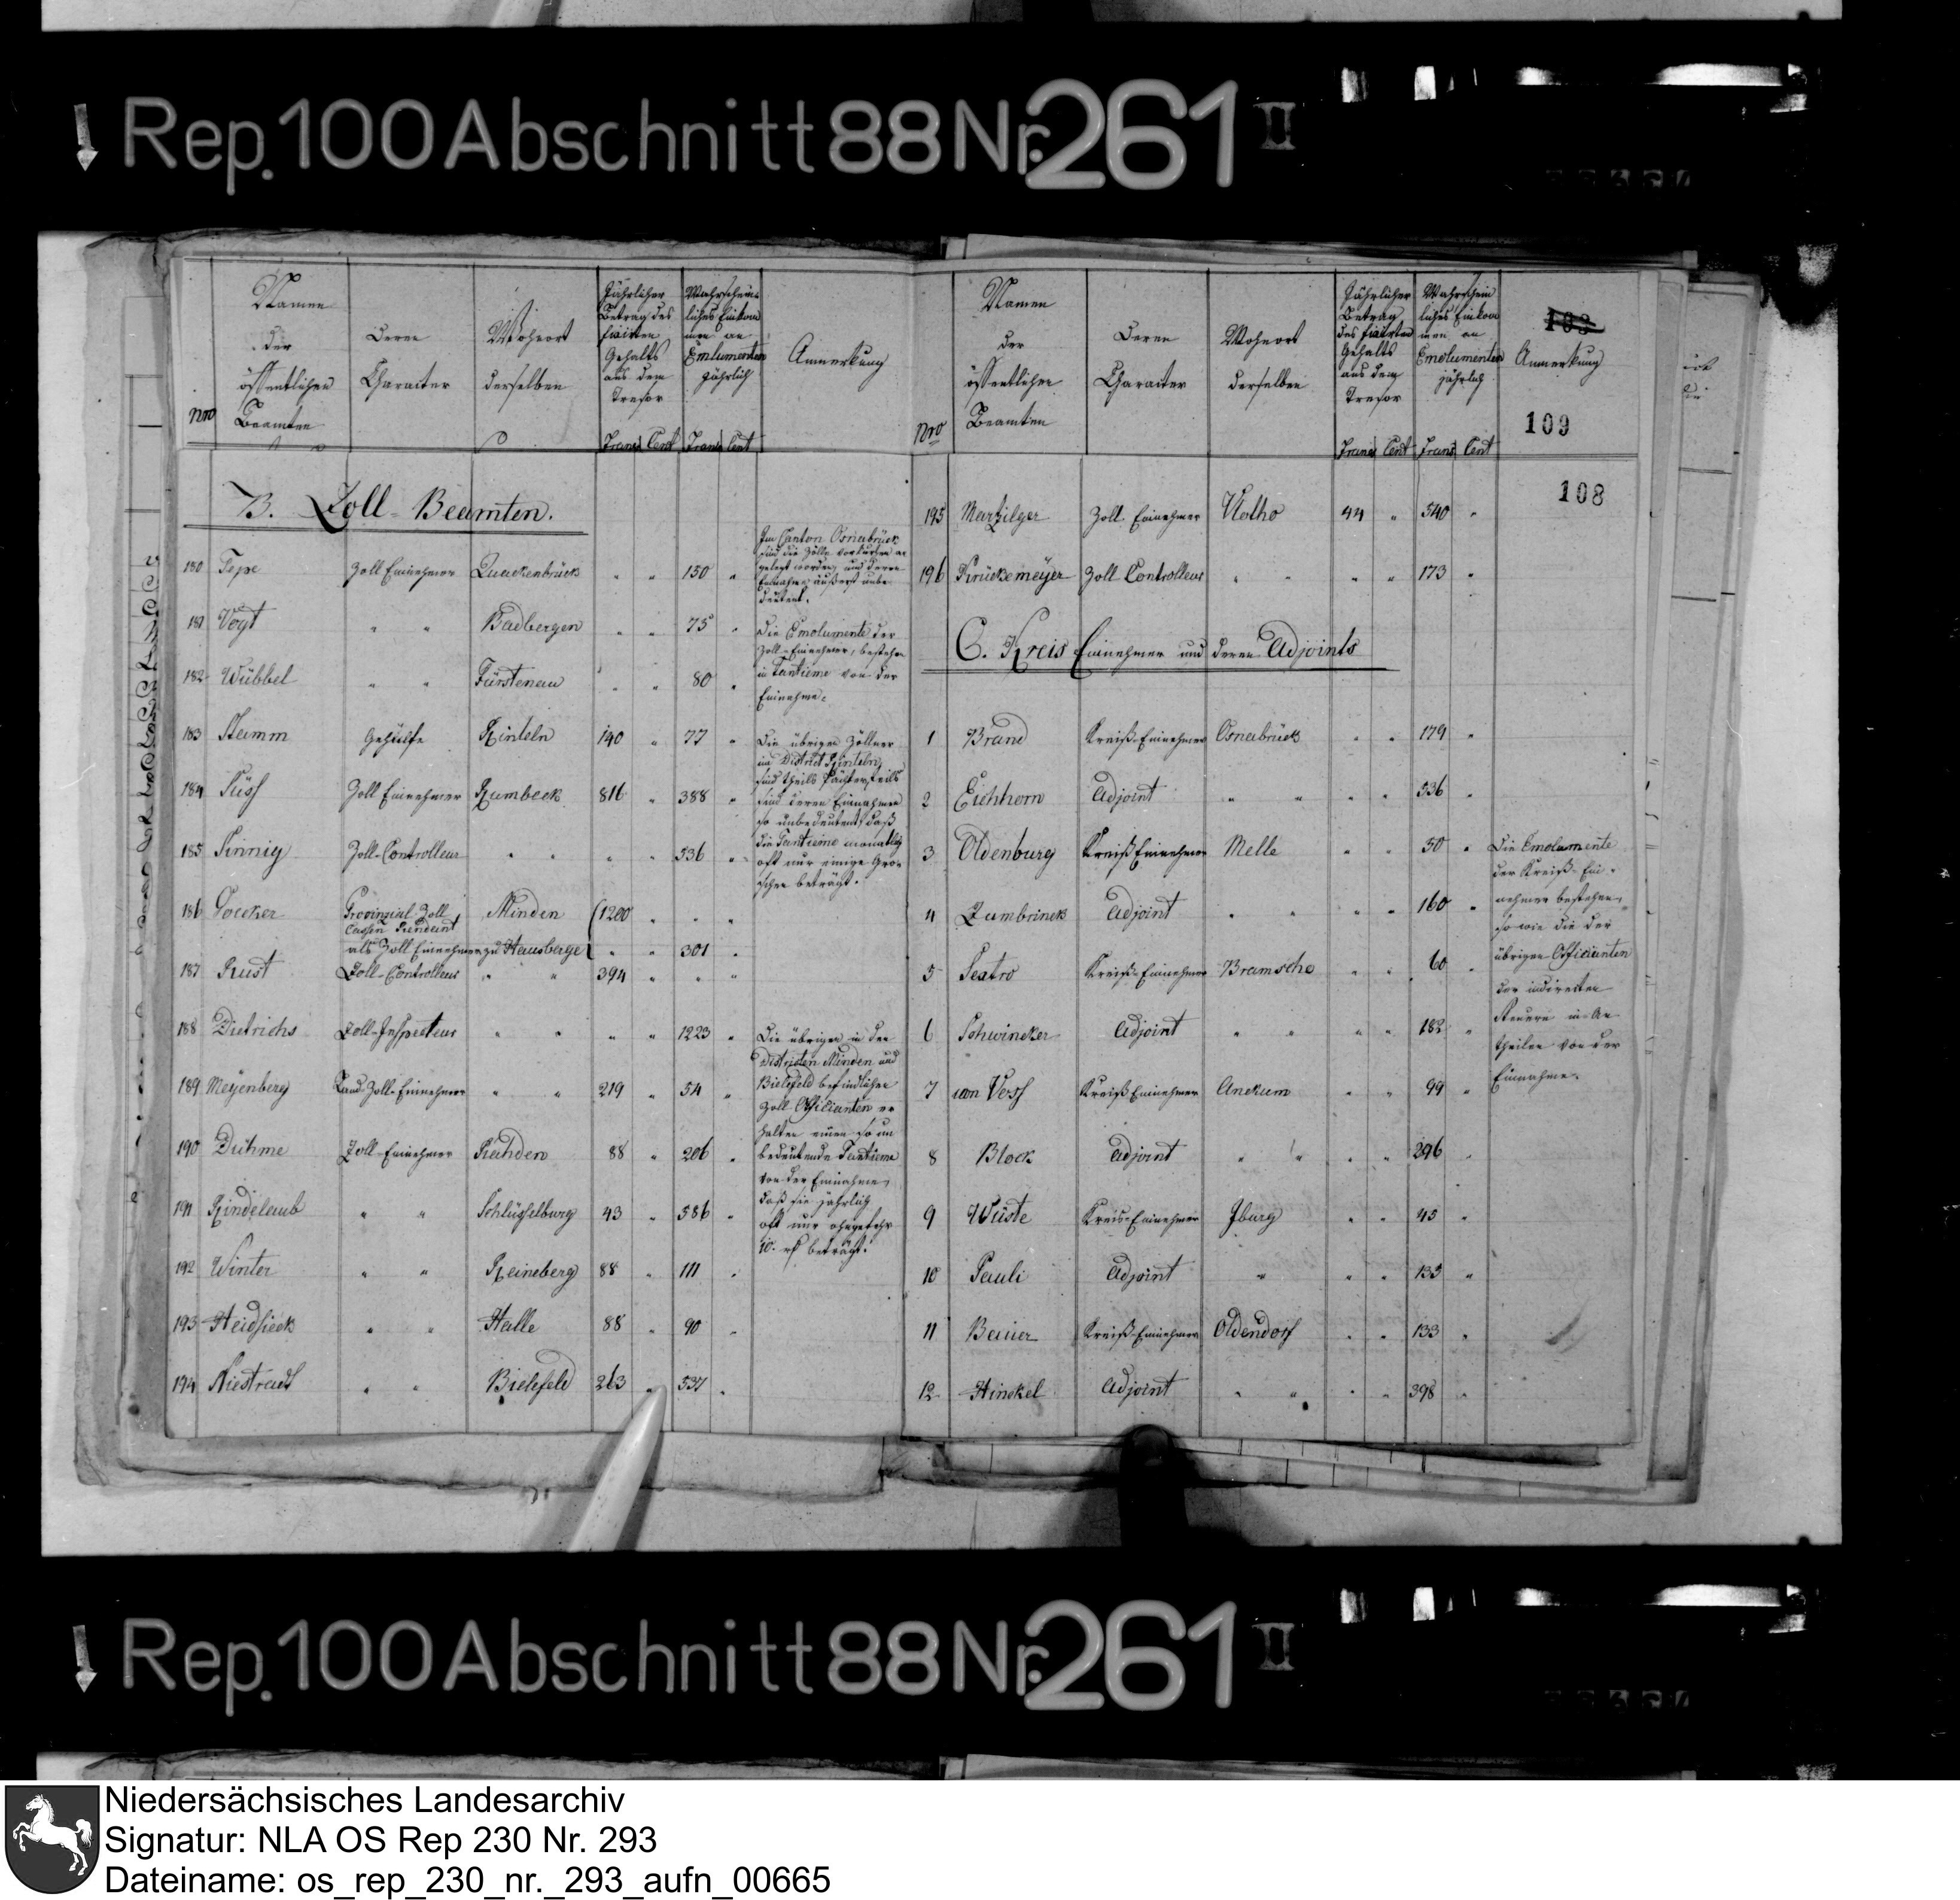 Rep. 100 Abschnitt 88 Nr. 261 II
Nro
Namen der öffentlichen Beamten
Deren Character
Wohnort derselben
Jährlicher Betrag des fixirten Gehalts aus dem Tresor
Franc Cent
Wahrscheinliches Einkommen an Emlumenten jährlich
Franc Cent
Anmerkung
B. Zoll-Beamten.
180 Tepe Zoll Einnehmer Quackenbrück " " 150 "
181 Vogt " " Badbergen " " 75 "
182 Wübbel " " Fürstenau " " 80 "
183 Stamm Gehülfe Rinteln 140 " 77 "
184 Süss Zoll Einnehmer Rumbeck 816 " 388 "
185 Sinnig Zoll-Controlleur " " " " 536 "
186 Provinzial Zoll Cassen Rendant Minden 1200 " " "
als Zoll Einnehmer zu Hausberge " " 301 "
187 Rust Zoll-Controlleur " " 394 " " "
188 Dietrichs Zoll-Inspecteur " " " " 1223 "
189 Meyenberg Land Zoll-Einnehmer " " 219 " 54 "
190 Duhme Zoll-Einnehmer Rahden 88 " 206 "
191 Rindelaub " " Schlüsselburg 43 " 586 "
192 Winter " " Reineberg 88 " 111 "
193 Heidsieck " " Halle 88 " 90 "
194 " " Bielefeld 263 " 537 "
Im Canton Osnabrück
sind die Zölle vor kurzem an
gelegt worden, und deren
Einnahme äußerst unbe
deutent.
Die Emolumente der
Zoll-Einnehmer, bestehen
in Tantieme von der
Einnahme.
Die übrigen Zöllner
im District Rinteln,
sind theils Pächter, theils
sind deren Einnahmen
so unbedeutent, daß
die Tantieme monatlich
oft nur einige Gro-
schen beträgt.
Die übrigen in den
Districten Minden und
Bielefeld befindlichen
Zoll Officianten er
halten einen so un
bedeutende Tantieme
von der Einnahme,
daß sie jährlich
oft nur ohngefehr
10. beträgt.
Nro
Namen der öffentlichen Beamten
Deren Character
Wohnort derselben
Jährlicher Betrag des fixirten Gehalts aus dem Tresor
Franc Cent
Wahrscheinliches Einkommen an Emolumenten jährlich
Franc Cent
103
Anmerkung
109
108
195 Marzilger Zoll Einnehmer Vlotho 44 " 540 "
196 Krückemeyer Zoll Controlleur " " " " 173 "
C. Kreis Einnehmer und deren Adjoints
1 Brand Kreiß-Einnehmer Osnabrück " " 179 "
2 Eichhorn Adjoint " " " " 536 "
3 Oldenburg Kreiß Einnehmer Melle " " 50 "
4 Zumbrinck Adjoint " " " " 160 "
5 Kreiß-Einnehmer Bramsche " " 60 "
6 Schwincker Adjoint " " " " 182 "
7 von Voss Kreiß Einnehmer Anckum " " 99 "
8 Block Adjoint " " " " 296 "
9 Wüste Kreis-Einnehmer Iburg " " 45 "
10 Pauli Adjoint " " " 133 "
11 Kreiß-Einnehmer Oldendorf " " 133 "
12 Hinckel Adjoint " " " " 398 "
Die Emolumente
der Kreiß-Ein-
nehmer bestehen,
so wie die der
übrigen Officianten
der indirecten
Steuern in An
theilen von der
Einnahme.
Rep. 100 Abschnitt 88 Nr. 261 II
Niedersächsisches Landesarchiv
Signatur: NLA OS Rep 230 Nr. 293
Dateiname: os_rep_230_nr._293_aufn_00665